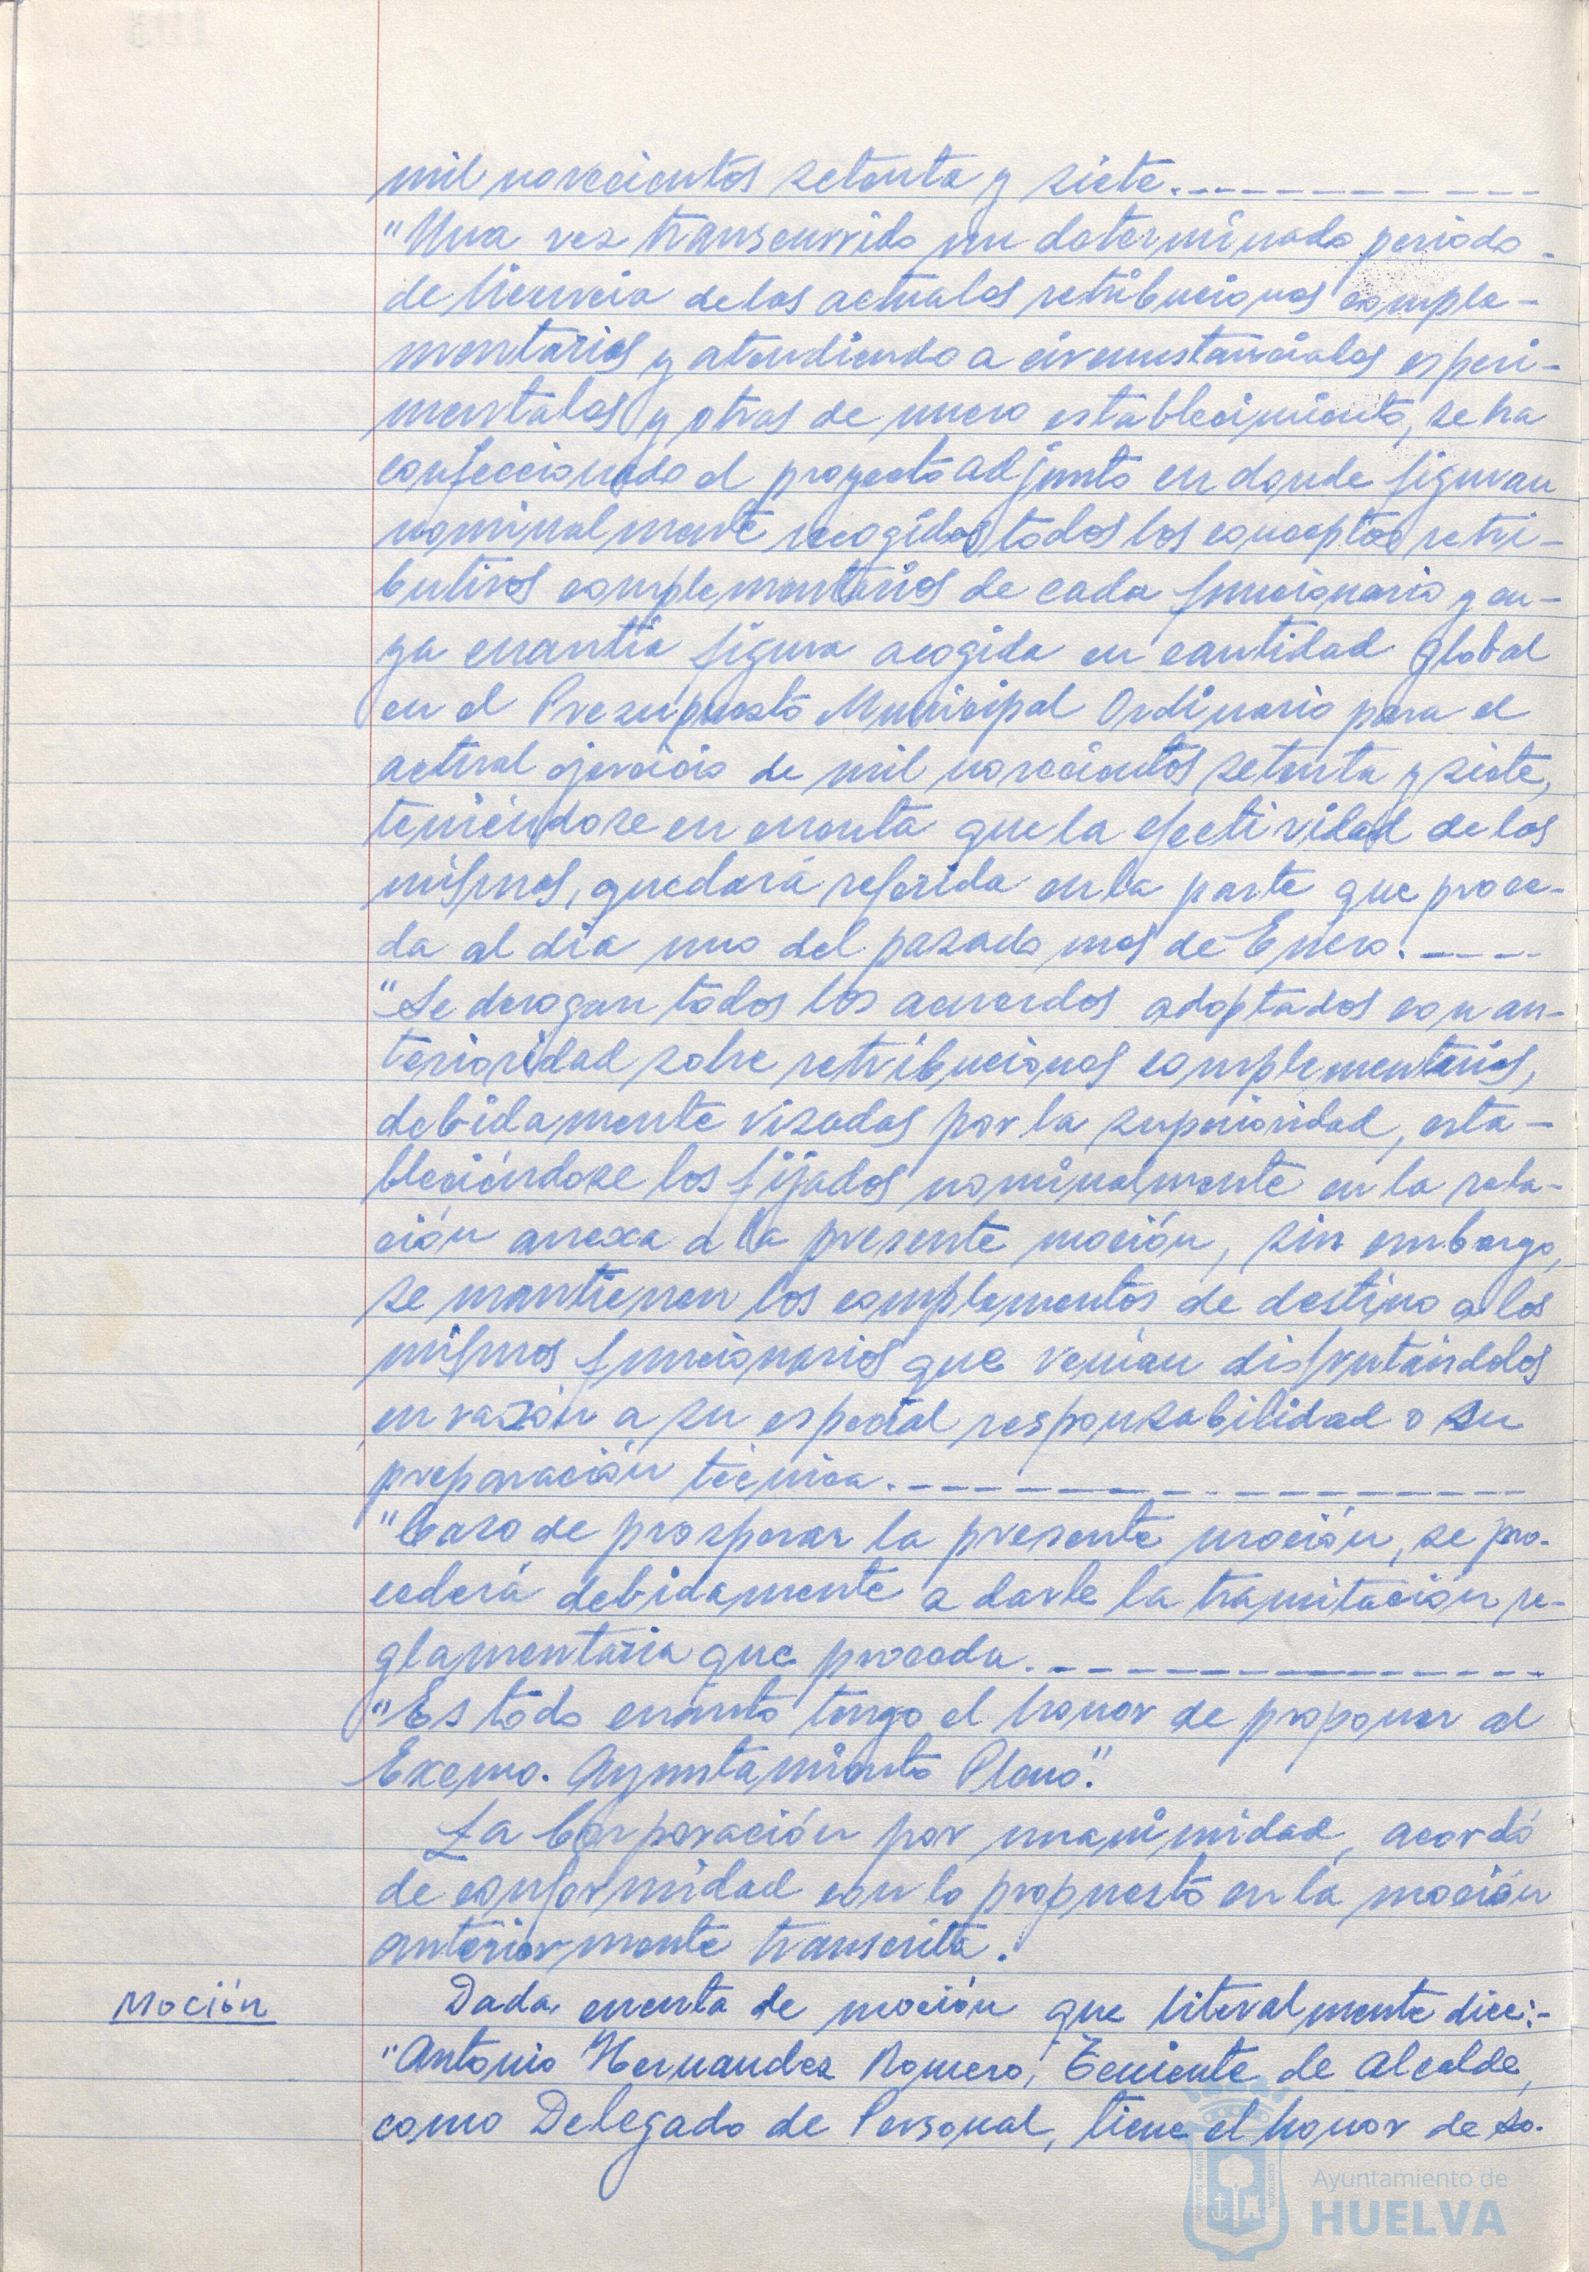 mil novecientos setenta y siete.
"Una vez transcurrido un determinado periodo
de licencia de las actuales retribuciones comple-
mentarias y atendiendo a circunstanciales experi-
mentales y otras de nuevo establecimiento, se ha
confeccionado el proyecto adjunto en donde figuran
nominalmente recogidos todos los conceptos retri-
butivos complementarios de cada funcionario y cu-
ya cuantía figura acogida en cantidad global
en el Presupuesto Municipal Ordinario para el
actual ejercicio de mil novecientos setenta y siete,
teniéndose en cuenta que la efectividad de los
mismos, quedará referida en la parte que proce-
da al día uno del pasado mes de Enero.
"Se derogan todos los acuerdos adoptados con an-
terioridad sobre retribuciones complementarias,
debidamente visadas por la superioridad, esta-
bleciéndose los fijados nominalmente en la rela-
ción anexa a la presente moción, sin embargo,
se mantienen los complementos de destino a los
mismos funcionarios que venían disfrutándolos
en razón a su especial responsabilidad o su
preparación técnica.
"Caso de prosperar la presente moción, se pro-
cederá debidamente a darle la tramitación re-
glamentaria que proceda.
"Es todo cuanto tengo el honor de proponer al
Excmo. Ayuntamiento Pleno".
La Corporación por unanimidad, acordó
de conformidad con lo propuesto en la moción
anteriormente transcrita.
Moción
Dada cuenta de moción que literalmente dice:-
"Antonio Hernandez Romero, Teniente de Alcalde,
como Delegado de Personal, tiene el honor de so-
Ayuntamiento de
HUELVA